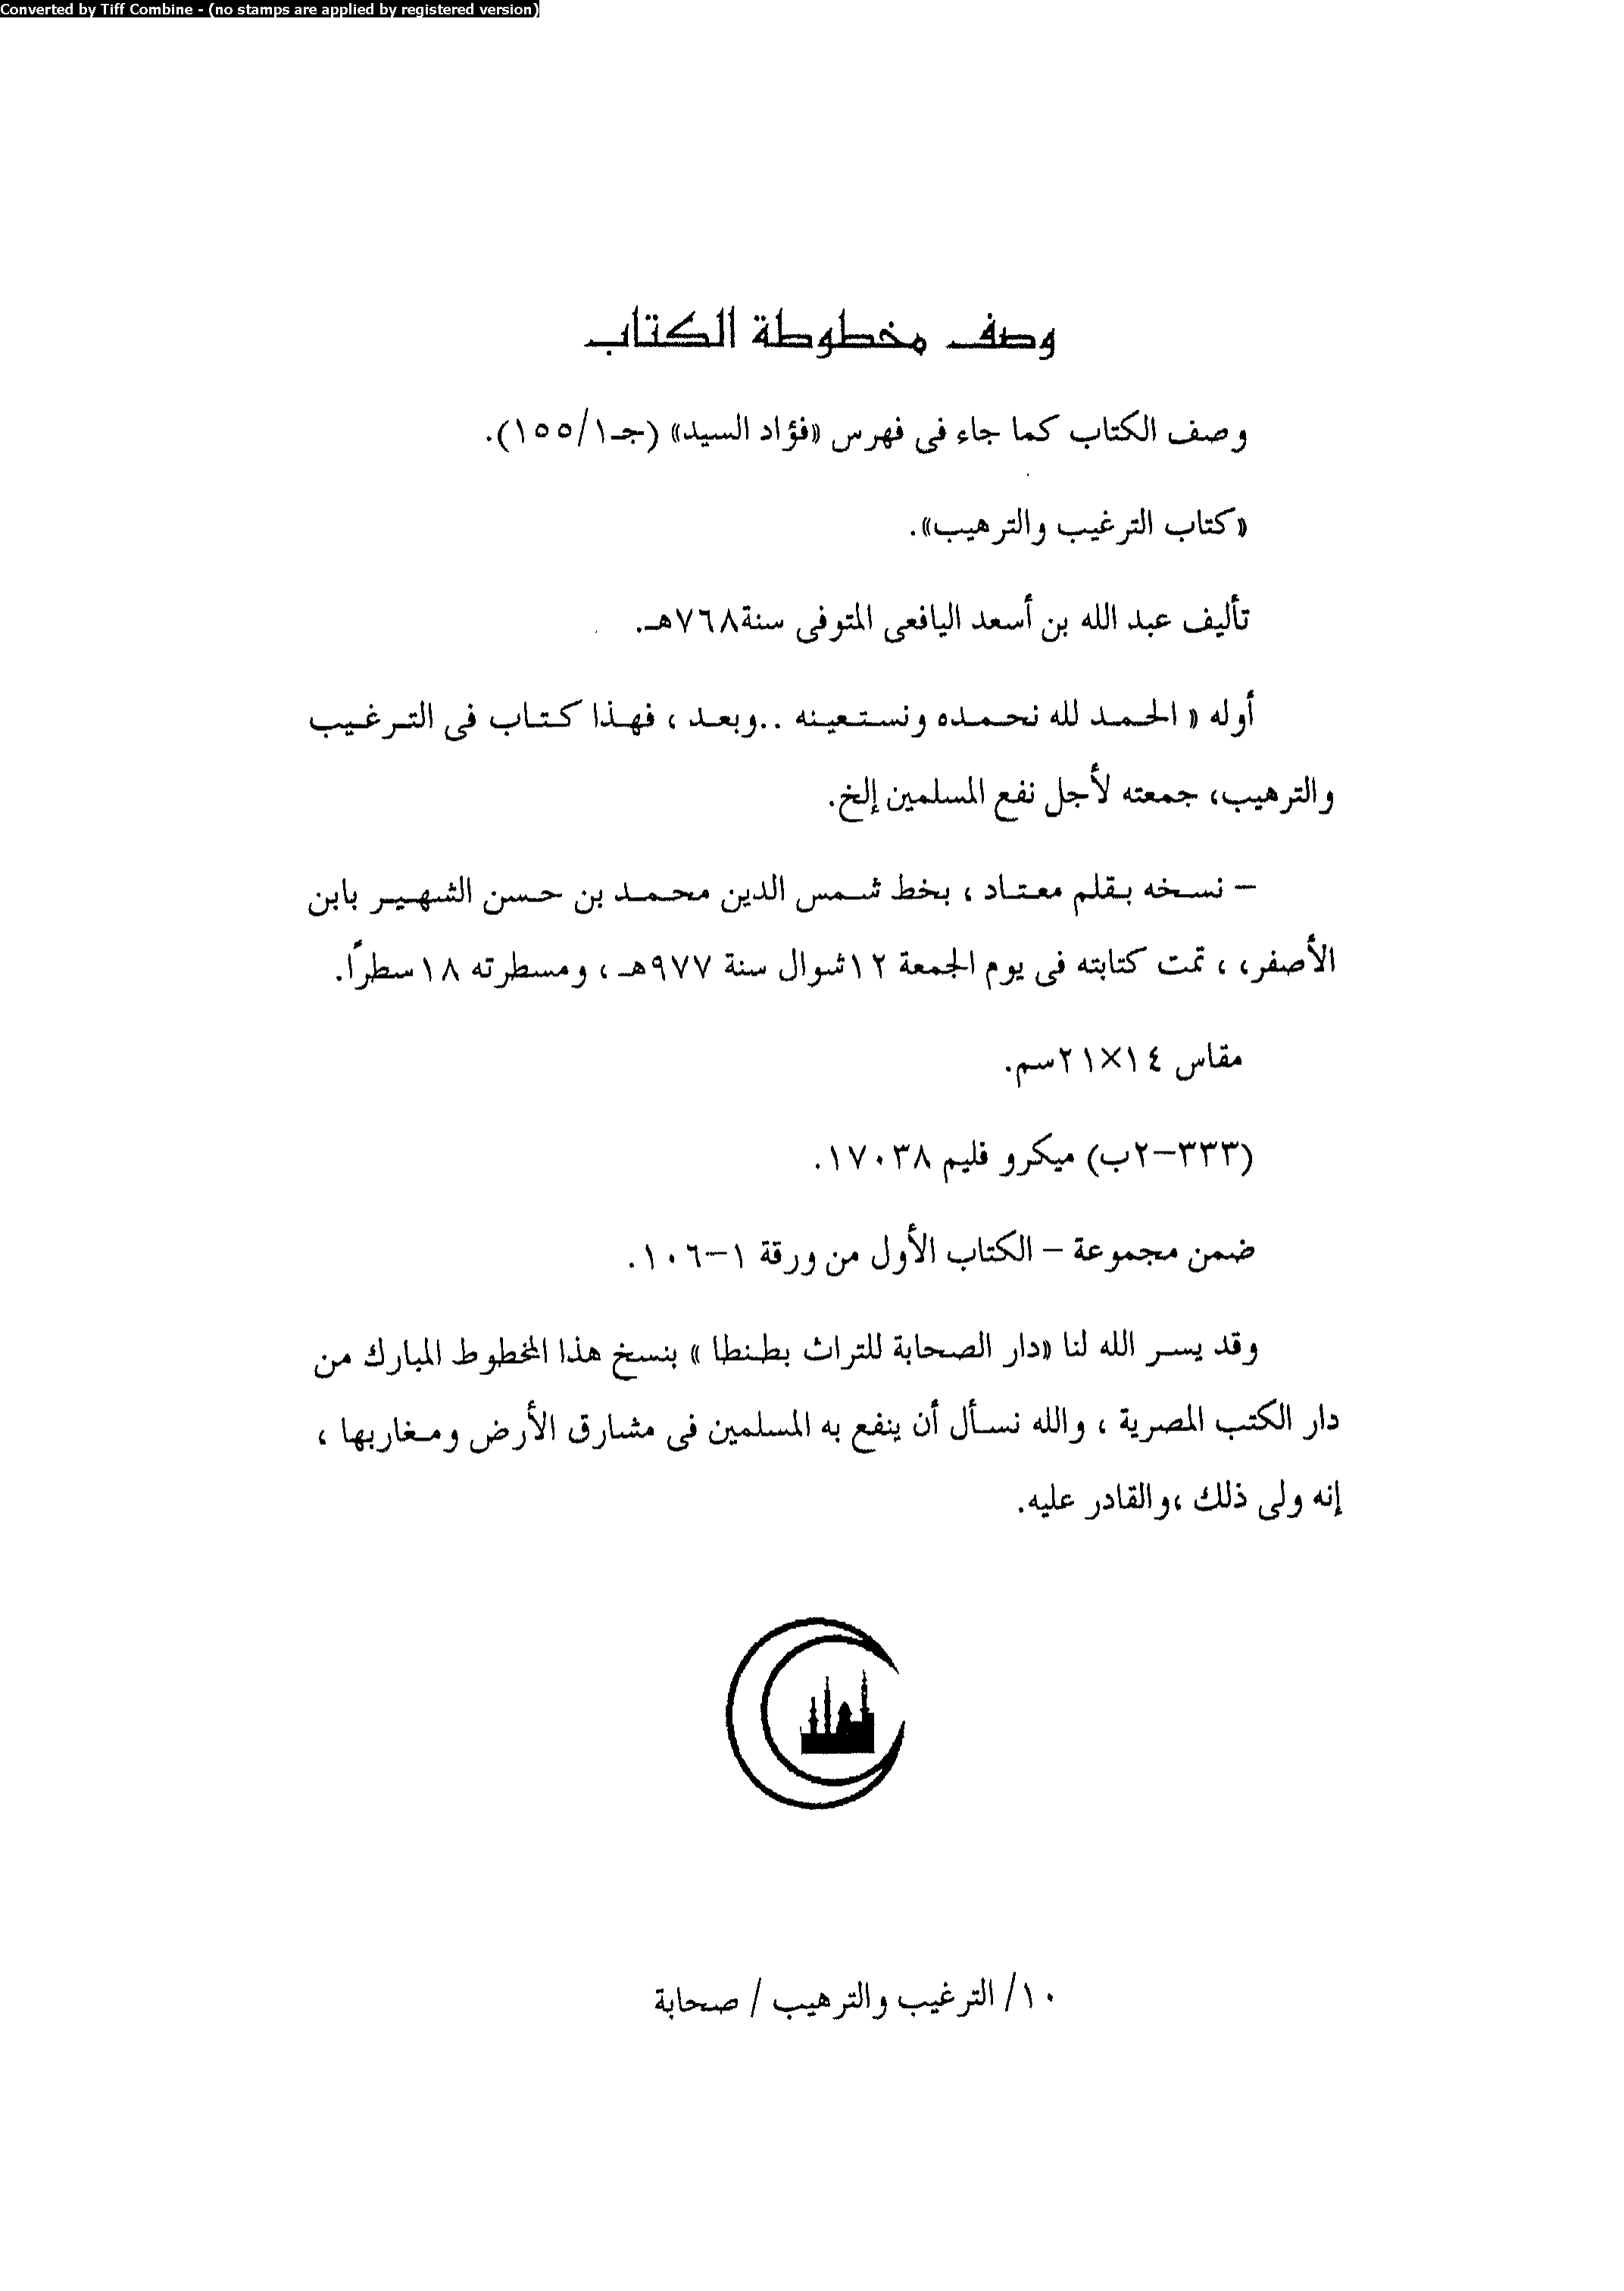 Converted by Tiff Combine - (no stamps are applied by registered version)
وصف مخطوطة الكتاب
وصف الكتاب كما جاء فى فهرس «فؤاد السيد» (جـ١/١٥٥).
«كتاب الترغيب والترهيب».
تأليف عبد الله بن أسعد اليافعى المتوفى سنة٧٦٨هـ.
أوله « الحمد لله نحمده ونستعينه ..وبعد ، فهذا كتاب فى الترغيب
والترهيب، جمعته لأجل نفع المسلمين إلخ.
– نسخه بقلم معتاد ، بخط شمس الدين محمد بن حسن الشهير بابن
الأصفر، ، تمت كتابته فى يوم الجمعة ١٢شوال سنة ٩٧٧هـ ، ومسطرته ١٨سطرًا.
مقاس ١٤×٢١سم.
(٣٣٣–٢ب) ميكرو فليم ١٧٠٣٨.
ضمن مجموعة – الكتاب الأول من ورقة ١–١٠٦.
وقد يسر الله لنا «دار الصحابة للتراث بطنطا » بنسخ هذا المخطوط المبارك من
دار الكتب المصرية ، والله نسأل أن ينفع به المسلمين فى مشارق الأرض ومغاربها ،
إنه ولى ذلك ،والقادر عليه.
١٠/ الترغيب والترهيب / صحابة